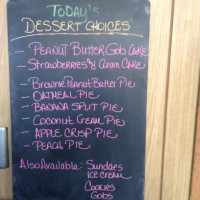 TODAY'S
DESSERT CHOICES
- PEANUT BUTTER GOB CAKE
- STRAWBERRIES N CREAM CAKE
- BROWNIE PEANUT BUTTER PIE
- OATMEAL PIE
- BANANA SPLIT PIE
- COCONUT CREAM PIE
- APPLE CRISP PIE
- PEACH PIE
Also Available: SUNDAES
ICE CREAM
COOKIES
GOBS